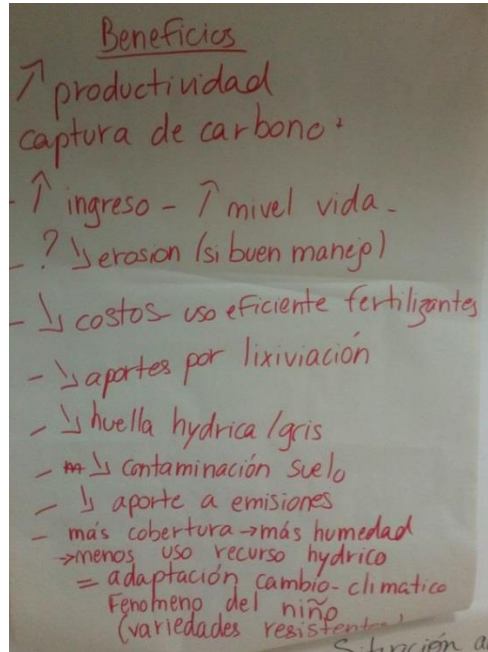 Beneficios
↗ productividad
captura de carbono
- ↑ ingreso - ↗ nivel vida -
- ? ↘ erosion (si buen manejo)
- ↘ costos uso eficiente fertilizantes
- ↘ aportes por lixiviación
- ↘ huella hydrica / gris
- ↘ contaminación suelo
- ↘ aporte a emisiones
- más cobertura → más humedad
→ menos uso recurso hydrico
= adaptación cambio-climatico
Fenomeno del niño
(variedades resistentes)
Situación